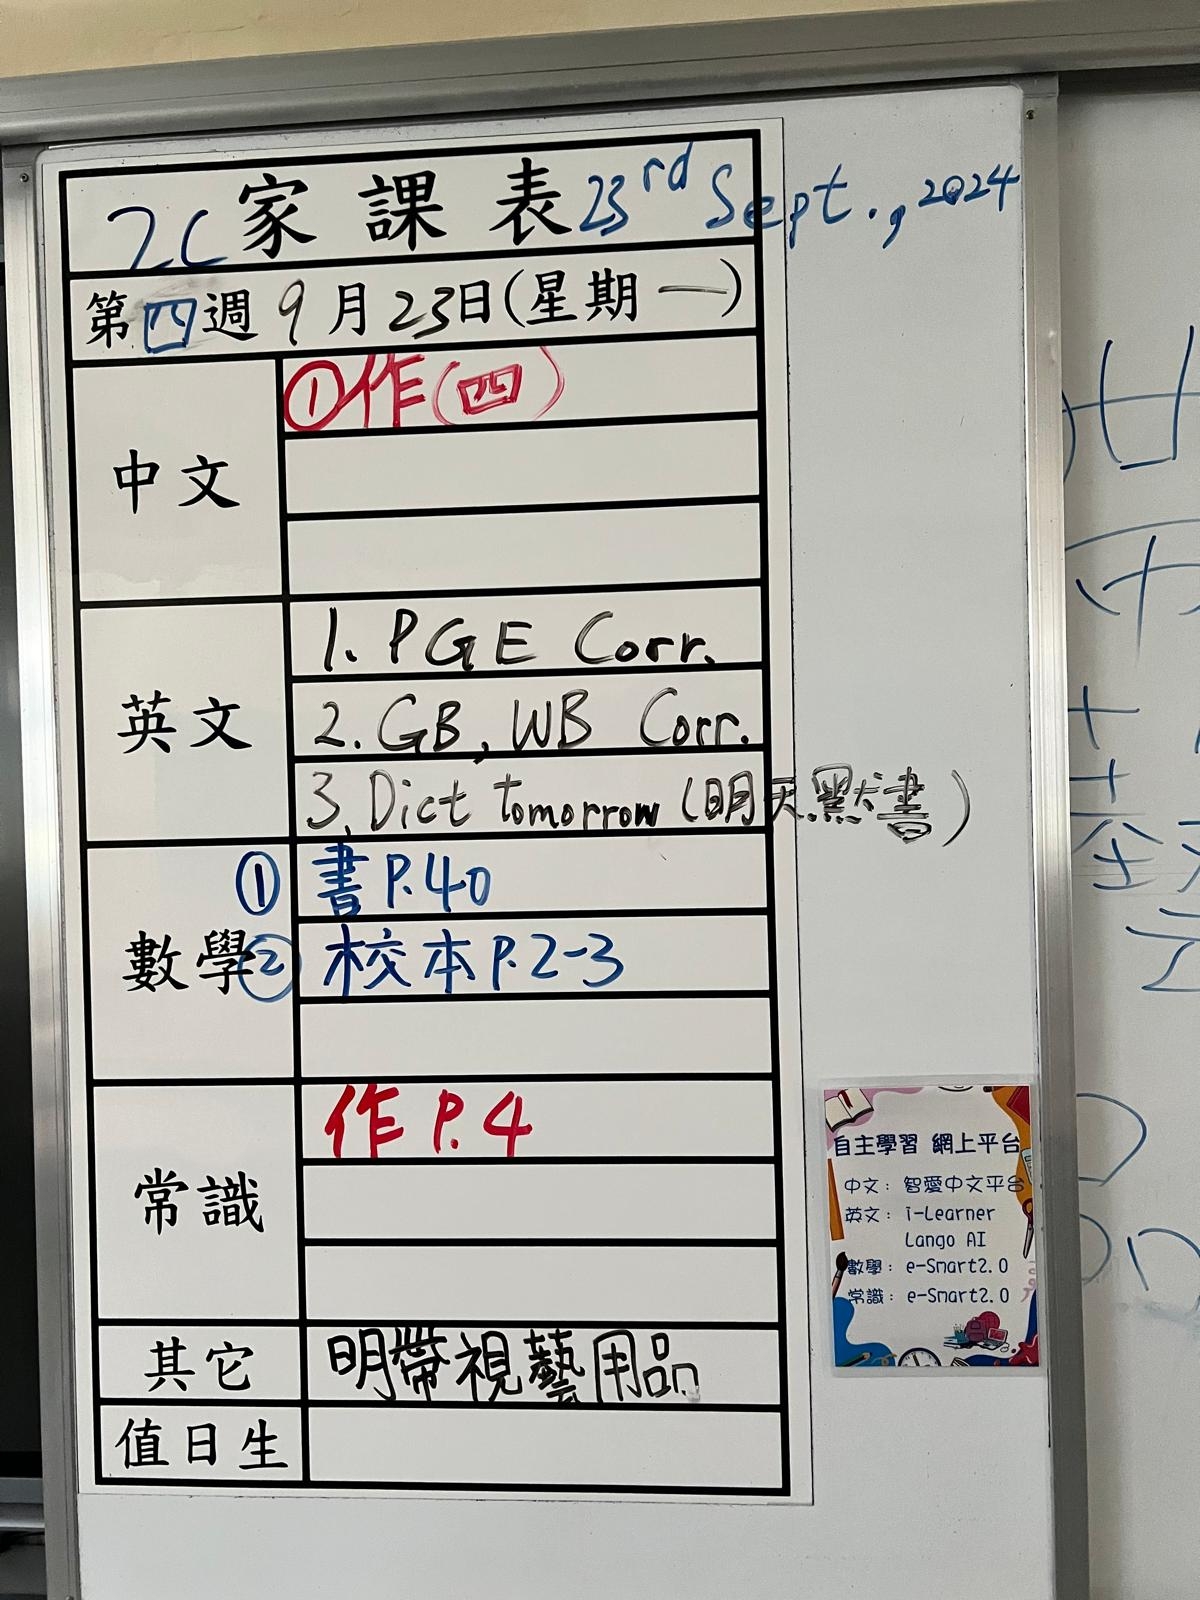 2C 家課表 23rd Sept., 2024
第四週 9月23日(星期一)
中文
①作(四)
英文
1. PGE Corr.
2. GB, WB Corr.
3. Dict tomorrow (明天默書)
數學
① 書P.40
② 校本P.2-3
常識
作 P.4
其它
明帶視藝用品
值日生
自主學習 網上平台
中文: 智愛中文平台
英文: i-Learner
Lango AI
數學: e-Smart2.0
常識: e-Smart2.0